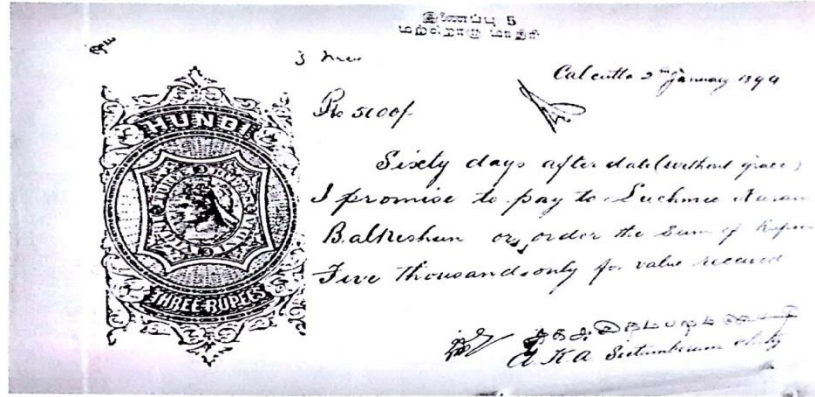 இணைப்பு 5
மற்றொரு மாதிரி
Calcutta 2nd January 1894
Rs 5000/-
HUNDI
THREE RUPEES
Sixty days after date (without grace)
I promise to pay to Luchmee Narain
Balkeshun or order the Sum of Rupees
Five thousands only for value received
A. K. A. Sistumberum Chetty